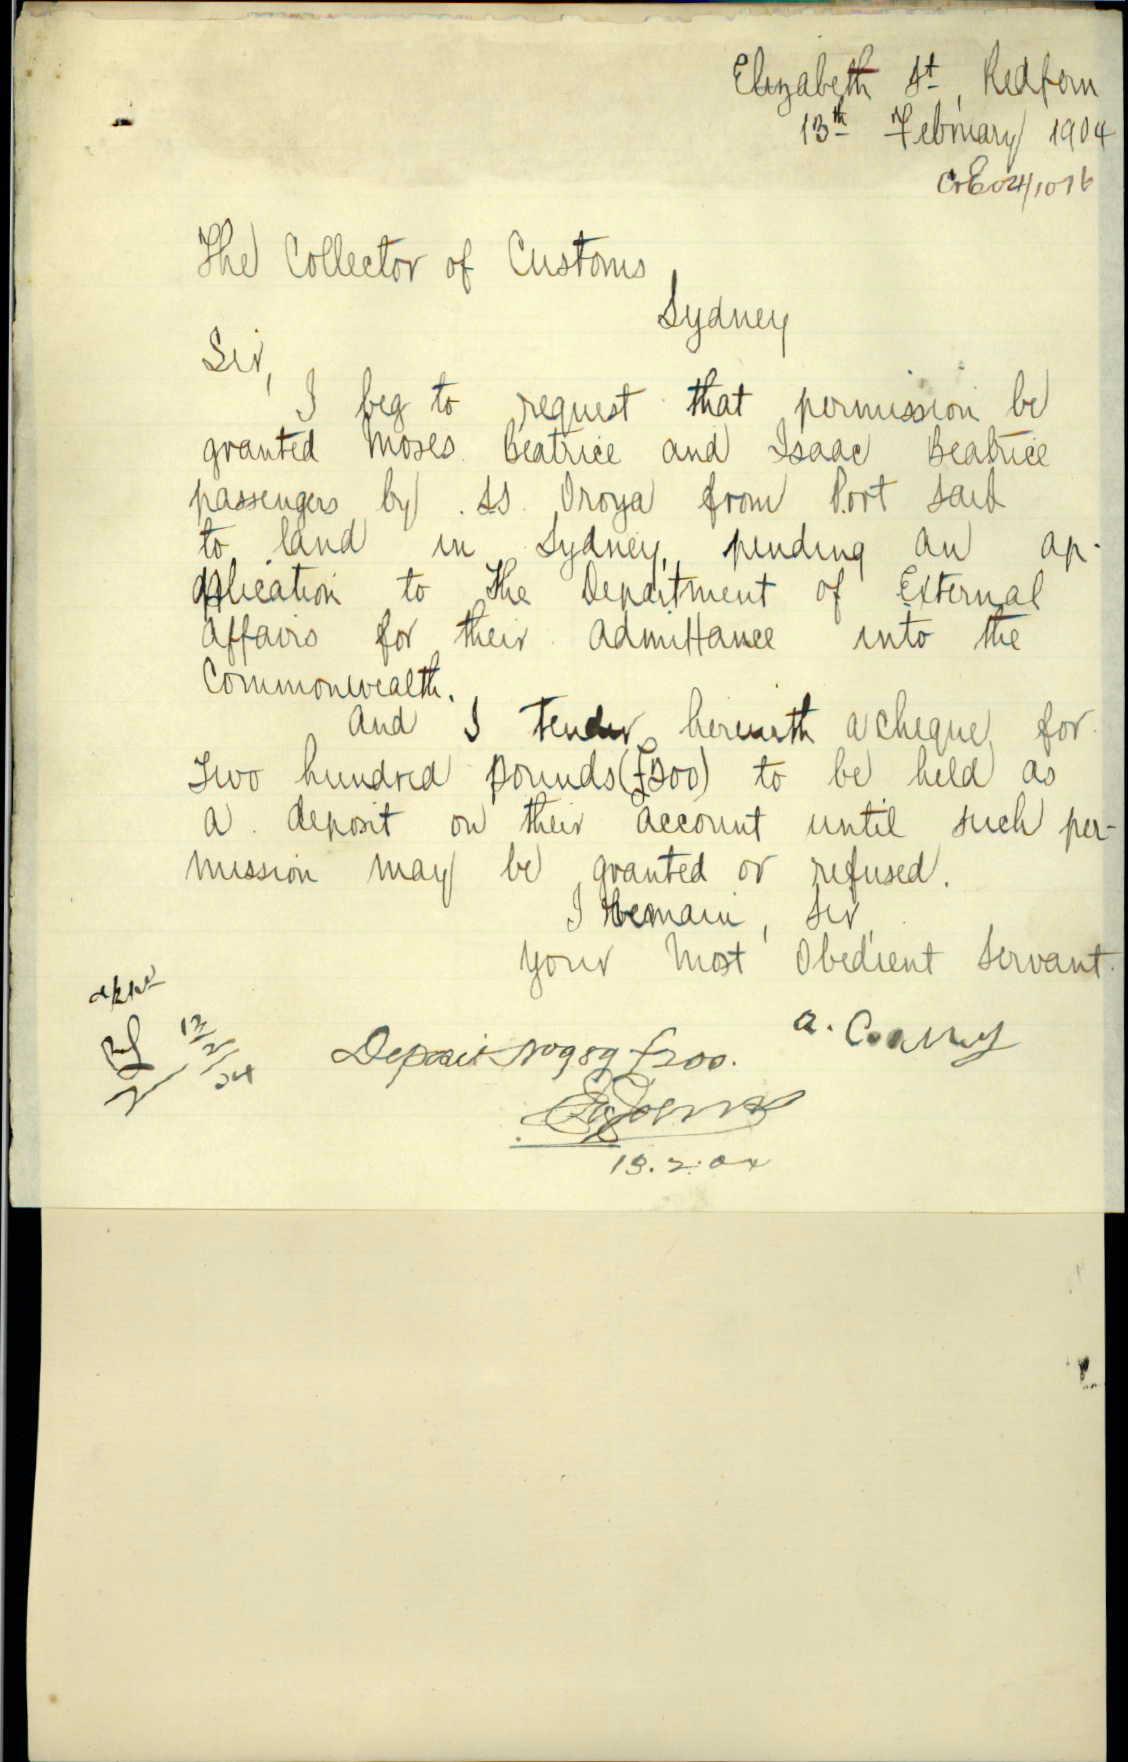 Elizabeth St, Redfern
13th February 1904
C&E 04/1076
The Collector of Customs
Sydney
Sir,
I beg to request that permission be
granted Moses Beatrice and Isaac Beatrice
passengers by SS Oroya from Port Said
to land in Sydney, pending an ap-
plication to the Department of External
Affairs for their admittance into the
Commonwealth.
And I tender herewith a cheque for
Two hundred pounds (£200) to be held as
a deposit on their account until such per-
mission may be granted or refused.
I Remain, Sir,
Your Most Obedient Servant.
A.
Deposit No 989 £200.
13/2/04
13.2.04